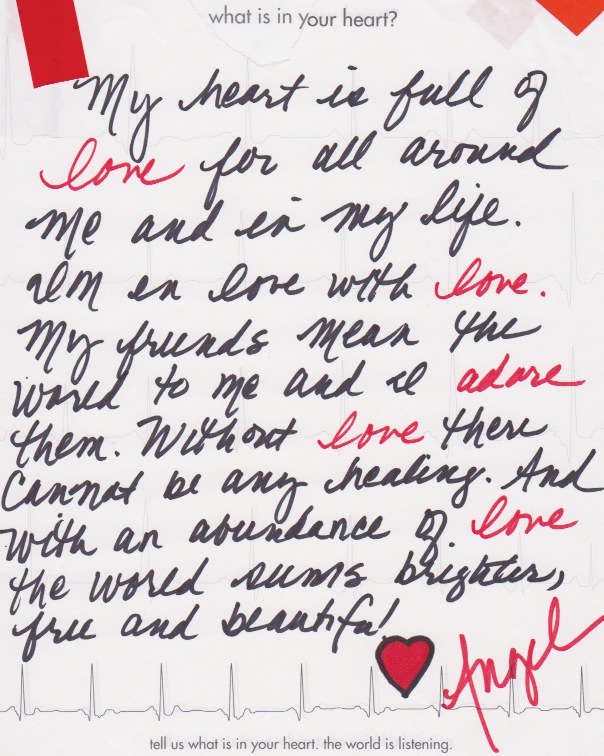 what is in your heart?
My heart is full of
love for all around
me and in my life.
Im in love with love.
My friends mean the
world to me and I adore
them. Without love there
cannot be any healing. And
with an abundance of love
the world seems brighter,
free and beautiful
Angel
tell us what is in your heart. the world is listening.